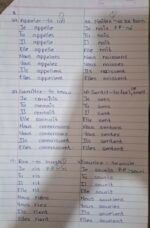 Appeler - to call
J' appelle
Tu appelles
Il appelle
Elle appelle
Nous appelons
Vous appelez
Ils appellent
Elles appellent
Naître - to be born
Je nais
Tu nais
Il naît
Elle naît
Nous naissons
Vous naissez
Ils naissent
Elles naissent
Connaître - to know
Je connais
Tu connais
Il connaît
Elle connaît
Nous connaissons
Vous connaissez
Ils connaissent
Elles connaissent
Sentir - to feel,
Je sens
Tu sens
Il sent
Elle sent
Nous sentons
Vous sentez
Ils sentent
Elles sentent
Rire - to laugh
Je ris
Tu ris
Il rit
Elle rit
Nous rions
Vous riez
Ils rient
Elles rient
Sourire - to smile
Je souris
Tu souris
Il sourit
Elle sourit
Nous sourions
Vous souriez
Ils sourient
Elles sourient